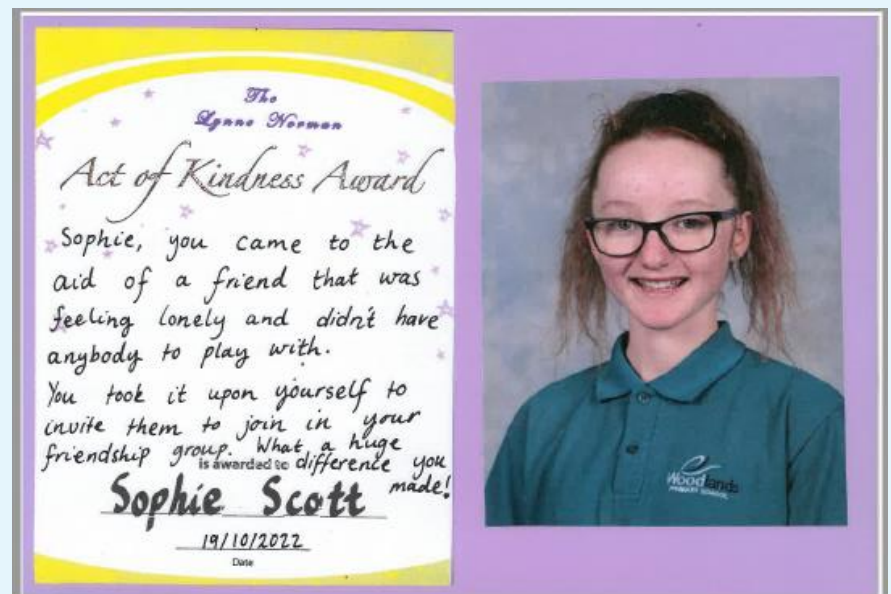 The
Lynne Norman
Act of Kindness Award
Sophie, you came to the
aid of a friend that was
feeling lonely and didn't have
anybody to play with.
You took it upon yourself to
invite them to join in your
friendship group. What a huge
is awarded to difference you
made!
Sophie Scott
19/10/2022
Date
Woodlands
PRIMARY SCHOOL